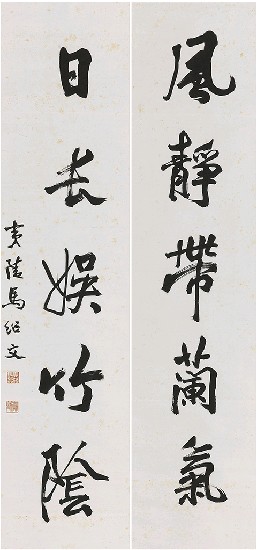 風靜帶蘭氣
日長娛竹陰
夷陵馬紹文